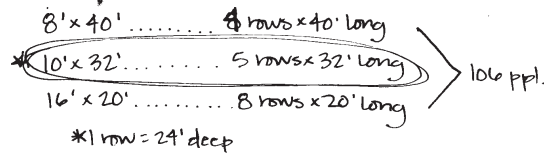 8' x 40' ......... 4 rows x 40' long
* 10' x 32' ......... 5 rows x 32' long
16' x 20' .......... 8 rows x 20' long
106 ppl.
*1 row = 24' deep